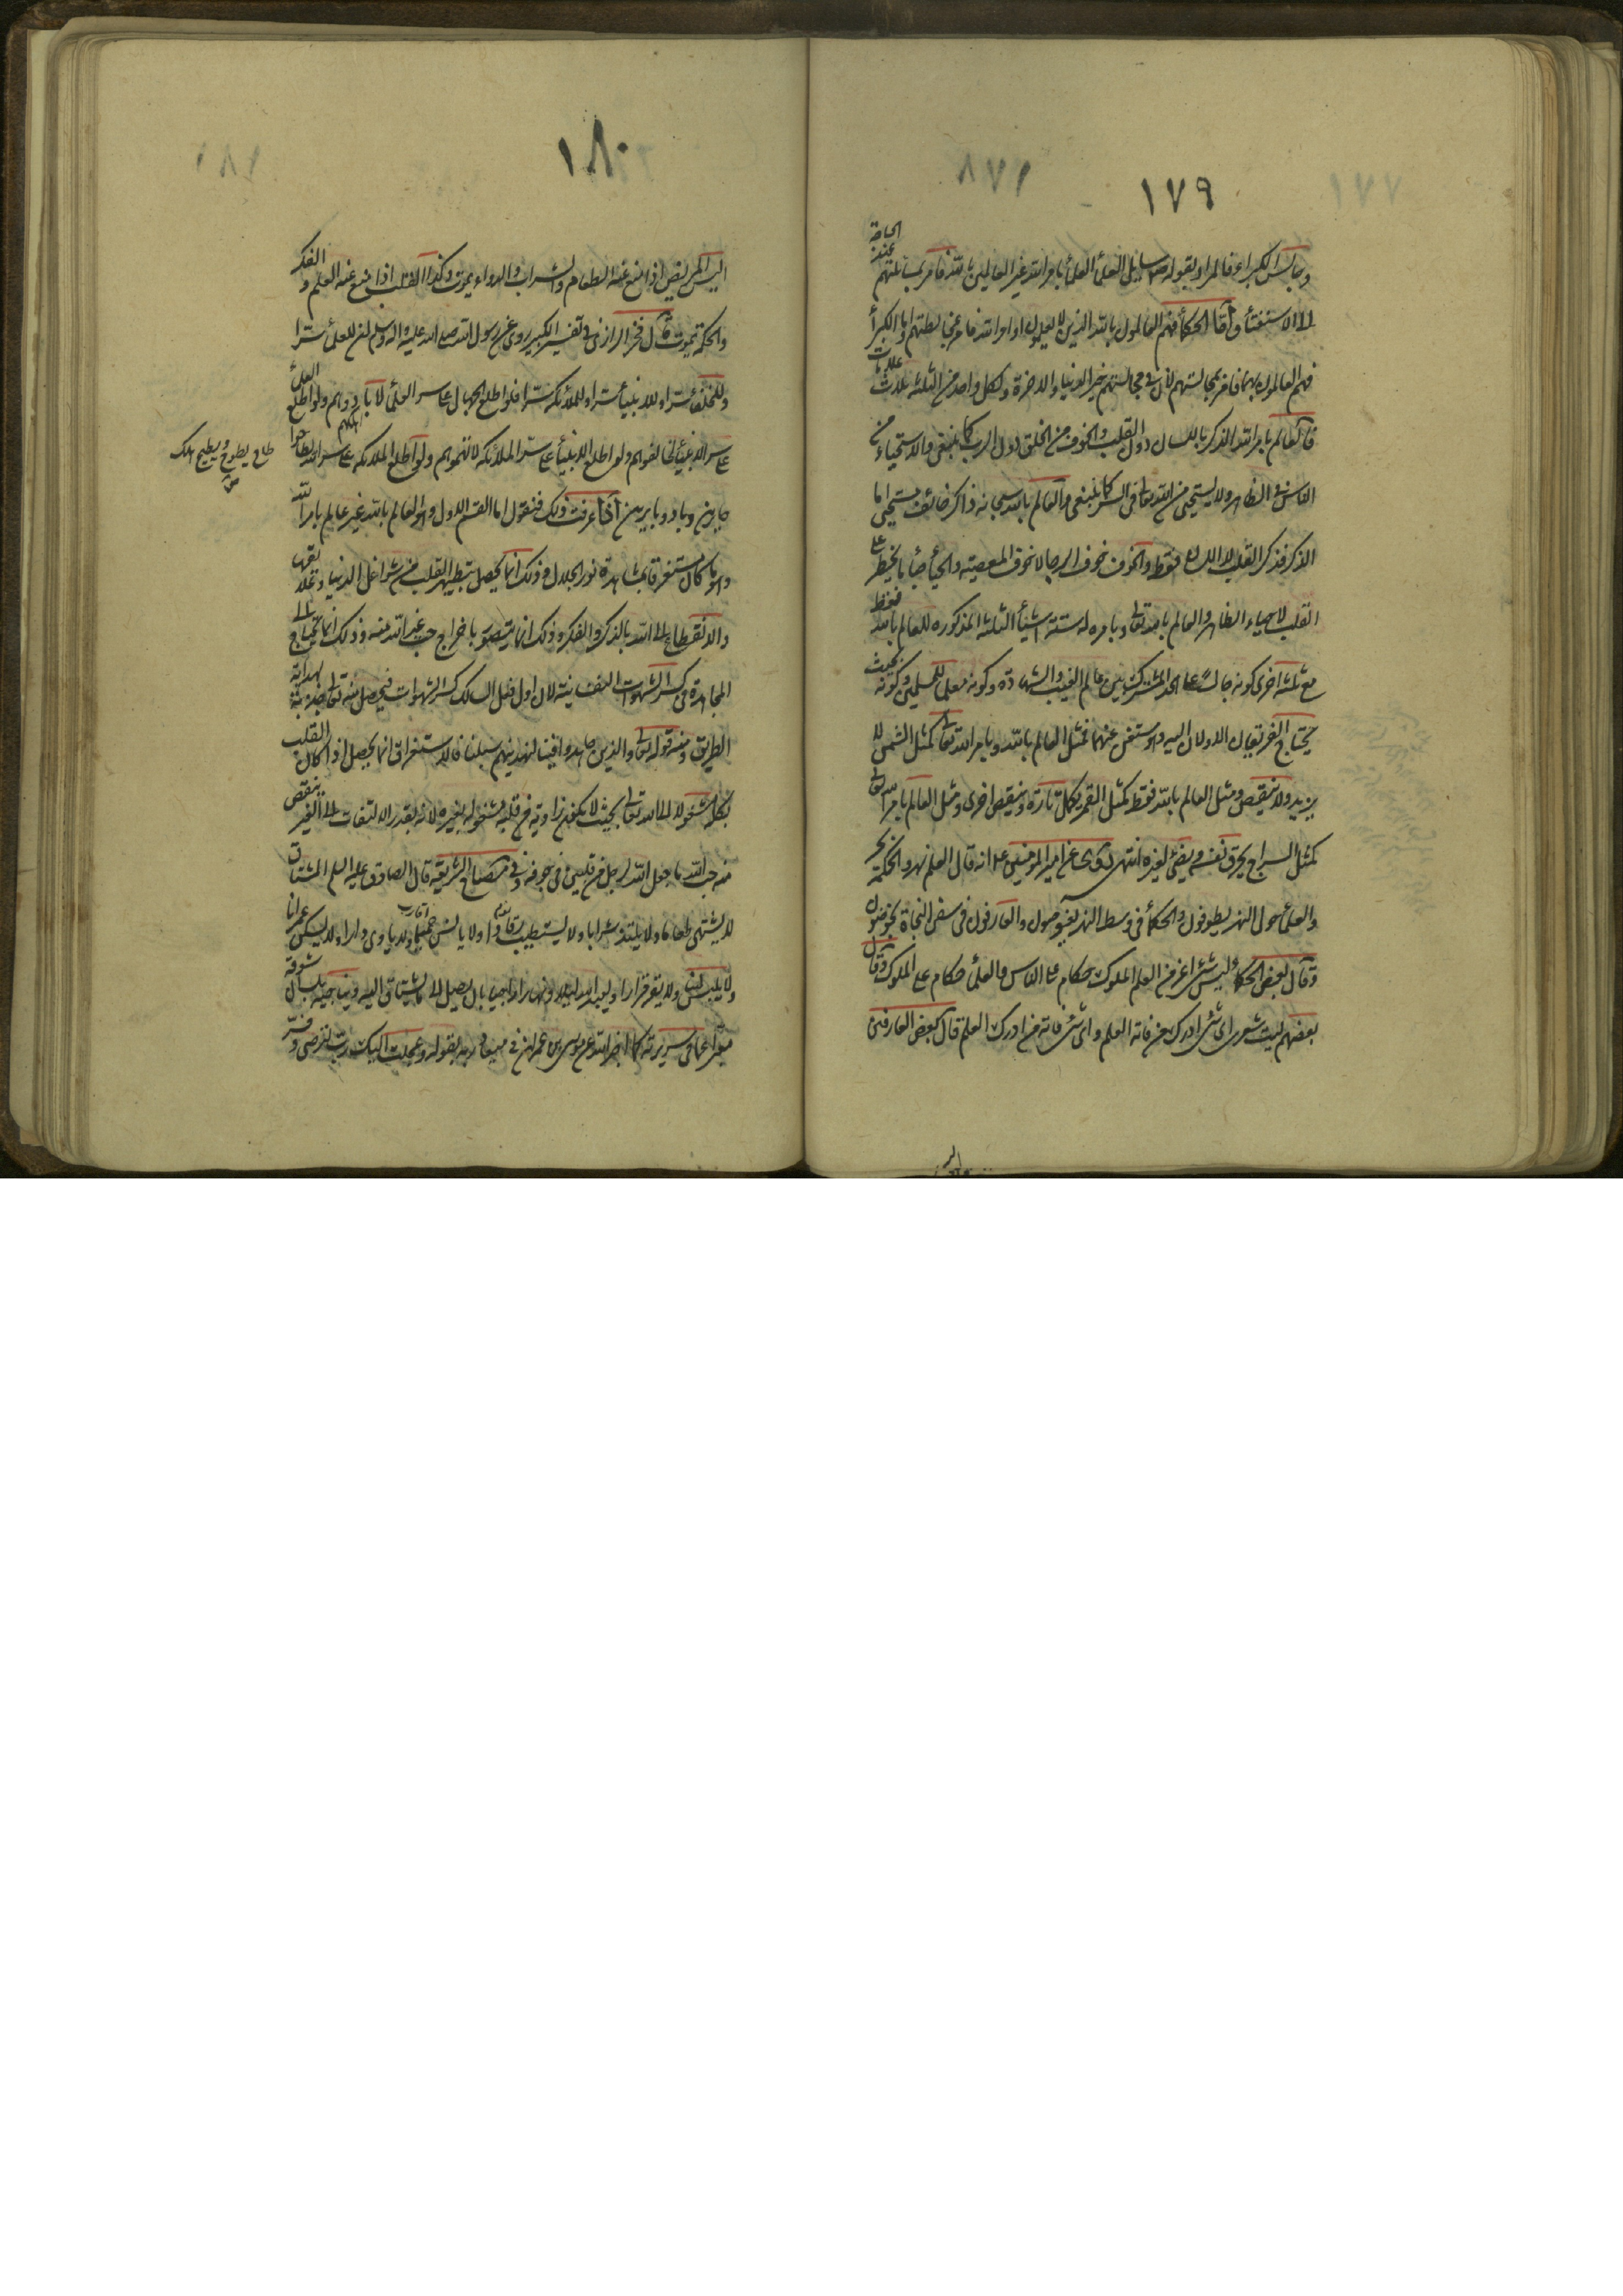 ١٧٩
وجالس الكبراء فالمراد بقوله ص سايل العلمأ العلمأ بامر الله غير العالمين بالله فامر بمسائلتهم عند الحاجة
الى الاستفتأ وأما الحكمأ فهم العالمون بالله الذين لا يعلمون اوامر الله فامر بمخالطتهم واما الكبرأ
فهم العالمون بهما فامر بمجالستهم لان في مجالستهم خير الدنيا والاخرة ولكل واحد من الثلثة ثلاث علامات
فالعالم بامر الله الذكر باللسان دون القلب والخوف من الخلق دون الرب كما ينبغي والاستحياء من
الناس في الظاهر ولا يستحيى من الله تعالى في السر كما ينبغي والعالم بالله سبحانه ذاكر خائف مستحيى اما
الذكر فذكر القلب لا اللسان فقط والخوف خوف الرجا لا خوف المعصية والحيأ حيأ ما يخطر على
القلب لا حياء الظاهر والعالم بالله تعالى وبامره له ستة اشيأ الثلثة المذكورة للعالم بالله فقط
مع ثلثة اخرى كونه جالسا على الحد المشترك بين عالم الغيب والشهادة وكونه معلما للمسلمين وكونه بحيث
يحتاج الفريقان الاولان اليه وهو مستغن عنهما فمثل العالم بالله وبامر الله تعالى كمثل الشمس لا
يزيد ولا ينقص ومثل العالم بالله فقط كمثل القمر يكمل تارة وينقص اخرى ومثل العالم بامر الله تعالى
كمثل السراج يحرق نفسه ويضئ لغيره انتهى روى عن امير المؤمنين ع انه قال العلم نهر والحكمة بحر
والعلمأ حول النهر يطوفون والحكمأ في وسط البحر يغوصون والعارفون في سفن النجاة يخوضون
وقال بعض الحكمأ ليس شئ اعز من العلم الملوك حكام على الناس والعلمأ حكام على الملوك وقال
بعضهم ليت شعرى اى شئ ادرك من فاته العلم واى شئ فاته من ادرك العلم قال بعض العارفين
١٨٠
اليس المريض اذا منع عنه الطعام والشراب والدواء يموت وكذا القلب اذا منع عنه العلم والفكر
والحكمة يموت قال فخر الرازى في تفسير الكبير روى عن رسول الله صلى الله عليه واله وسلم ان للعلمأ سترا
وللخلفأ سترا وللانبيأ سترا وللملائكة سترا فلو اطلع الجهال على سر العلمأ لابادوهم ولو اطلع العلمأ
على سر الانبيأ لخالفوهم ولو اطلع الانبيأ على سر الملائكة لاتهموهم ولو اطلع الملائكة على سر الله لطاحوا
طاح يطوح ويطيح هلك
ص
حايرين وبادوا بايرين اذا عرفت ذلك فنقول اما القسم الاول وهو العالم بالله غير عالم بامر الله
وهو ما كان مستغرقا بمشاهدة نور الجلال وذلك انما يحصل بتطهير القلب من شواغل الدنيا وعلايقها
والانقطاع الى الله بالذكر والفكر وذلك انما يتصور باخراج حب غير الله منه وذلك انما يحتاج الى
المجاهدة في كسر الشهوات النفسانية لان اول فعل السالك كسر الشهوات فيحصل منه تعالى جذبة بهداية
الطريق ومنه قوله تعالى والذين جاهدوا فينا لنهدينهم سبلنا فالاستغراق انما يحصل اذا كان القلب
بكله مشغولا الى الله تعالى بحيث لا يكون زاوية من قلبه مشغوله بغيره لانه بقدر الالتفات الى الغير ينقص
منه حب الله ما جعل الله لرجل من قلبين في جوفه وفي مصباح الشريعة قال الصادق عليه السلم المشتاق
لا يشتهى طعاما ولا يلتذ شرابا ولا يستطيب رقادا ولا يانس حميما ولا ياوى دارا ولا يسكن عمرانا
ولا يلبس لينا ولا يقر قرارا ويعبد الله ليلا ونهارا راجيا بان يصل الى ما يشتاق اليه ويناجيه بلسان شوقه
معبرا عما في سريرته كما اخبر الله عن موسى بن عمران في ميعاد ربه بقوله وعجلت اليك رب لترضى وفسر